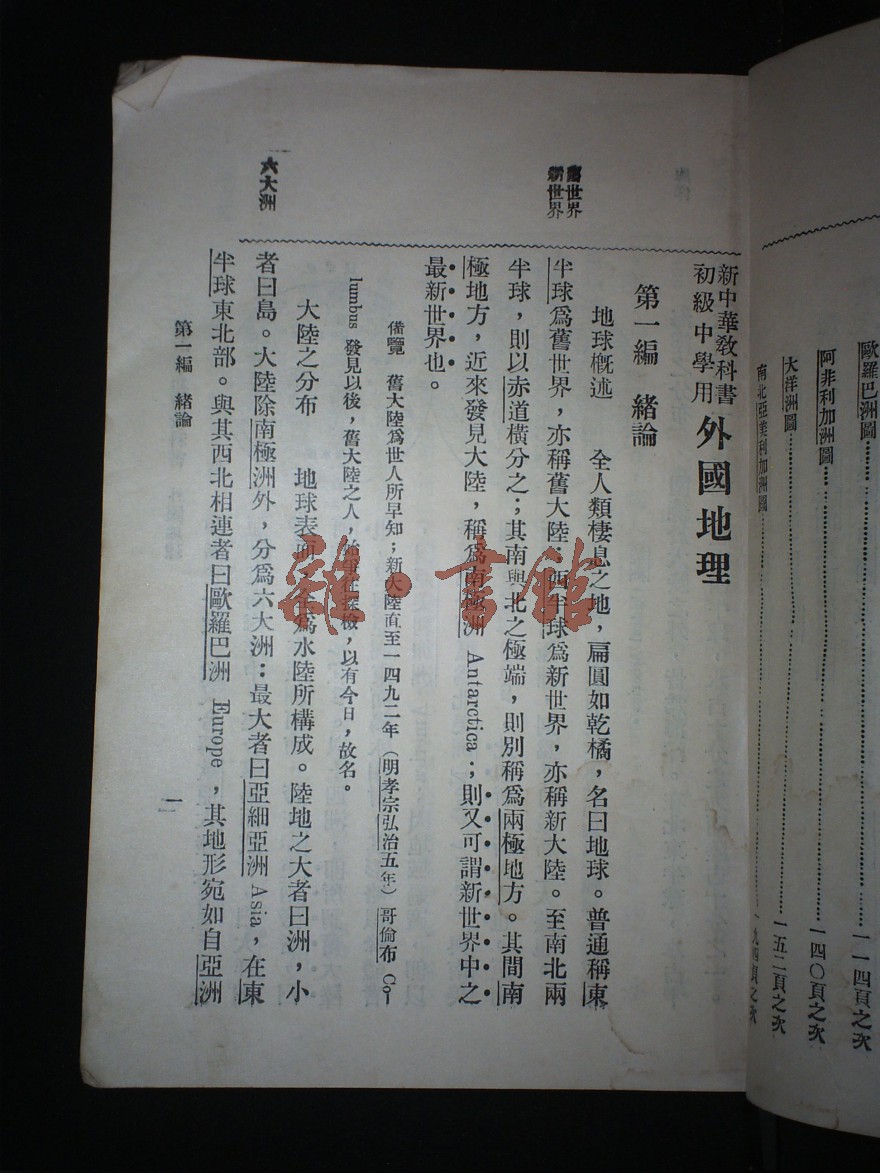 歐羅巴洲圖……一一四頁之次
阿非利加洲圖……一四〇頁之次
大洋洲圖……一五二頁之次
南北亞美利加洲圖……一九四頁之次
新中華教科書
初級中學用
外國地理
第一編 緒論
舊世界
新世界
地球概述 全人類棲息之地，扁圓如乾橘，名曰地球。普通稱東
半球爲舊世界，亦稱舊大陸；西半球爲新世界，亦稱新大陸。至南北兩
半球，則以赤道橫分之；其南與北之極端，則別稱爲兩極地方。其間南
極地方，近來發見大陸，稱爲南極洲 Antarctica；則又可謂新世界中之
最新世界也。
備覽 舊大陸爲世人所早知；新大陸直至一四九二年（明孝宗弘治五年）哥倫布 Co-
lumbus 發見以後，舊大陸之人，始爭往探檢，以有今日，故名。
六大洲
大陸之分布 地球表面，全爲水陸所構成。陸地之大者曰洲，小
者曰島。大陸除南極洲外，分爲六大洲：最大者曰亞細亞洲 Asia，在東
半球東北部。與其西北相連者曰歐羅巴洲 Europe，其地形宛如自亞洲
第一編 緒論
一
雜·書館